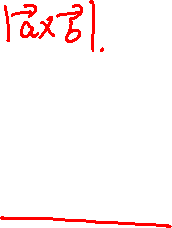 |a⃗×b⃗|.